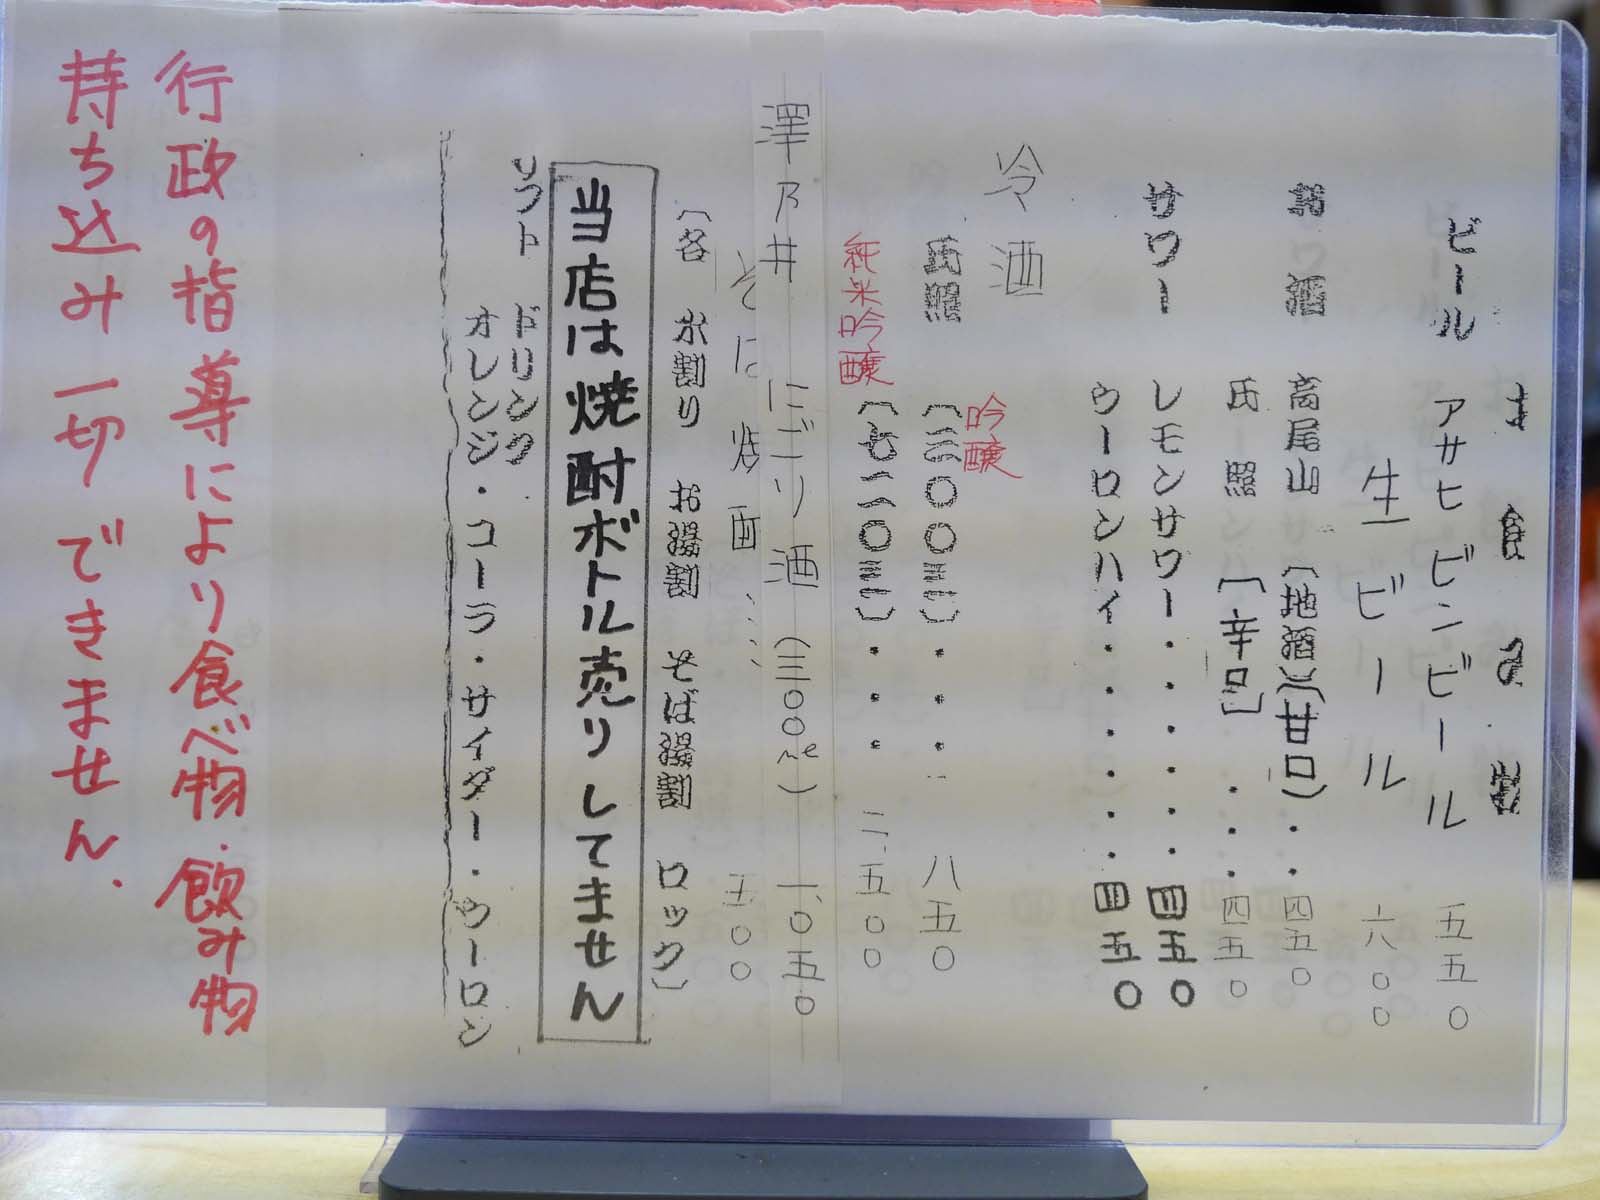 お食事の
ビール アサヒ ビンビール 五五〇
生ビール 六〇〇
お酒 高尾山 (地酒)(甘口)・・四五〇
氏照 [辛口]・・・・四五〇
サワー レモンサワー・・・・・四五〇
ウーロンハイ・・・・・四五〇
冷酒
吟醸
氏照 (三〇〇ミリ)・・・ 八五〇
純米吟醸 (七二〇ミリ)・・・ 二、五〇〇
澤乃井 にごり酒 (三〇〇ml) 一、〇五〇
そば焼酎 五〇〇
(各 水割り お湯割 そば湯割 ロック)
当店は焼酎ボトル売りしてません
ソフト ドリンク
オレンジ・コーラ・サイダー・ウーロン
行政の指導により食べ物・飲み物
持ち込み一切できません.